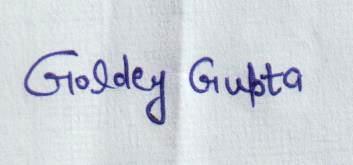 Goldey Gupta